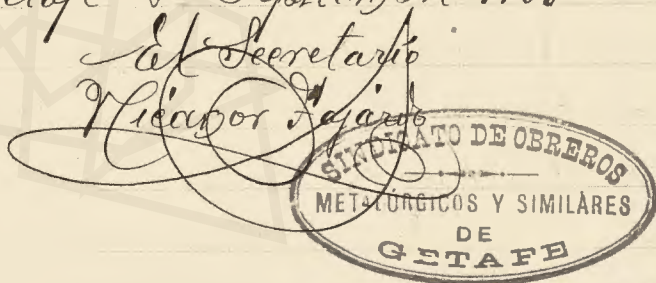 El Secretario
Nicanor Fajardo
SINDICATO DE OBREROS
METALÚRGICOS Y SIMILARES
DE
GETAFE